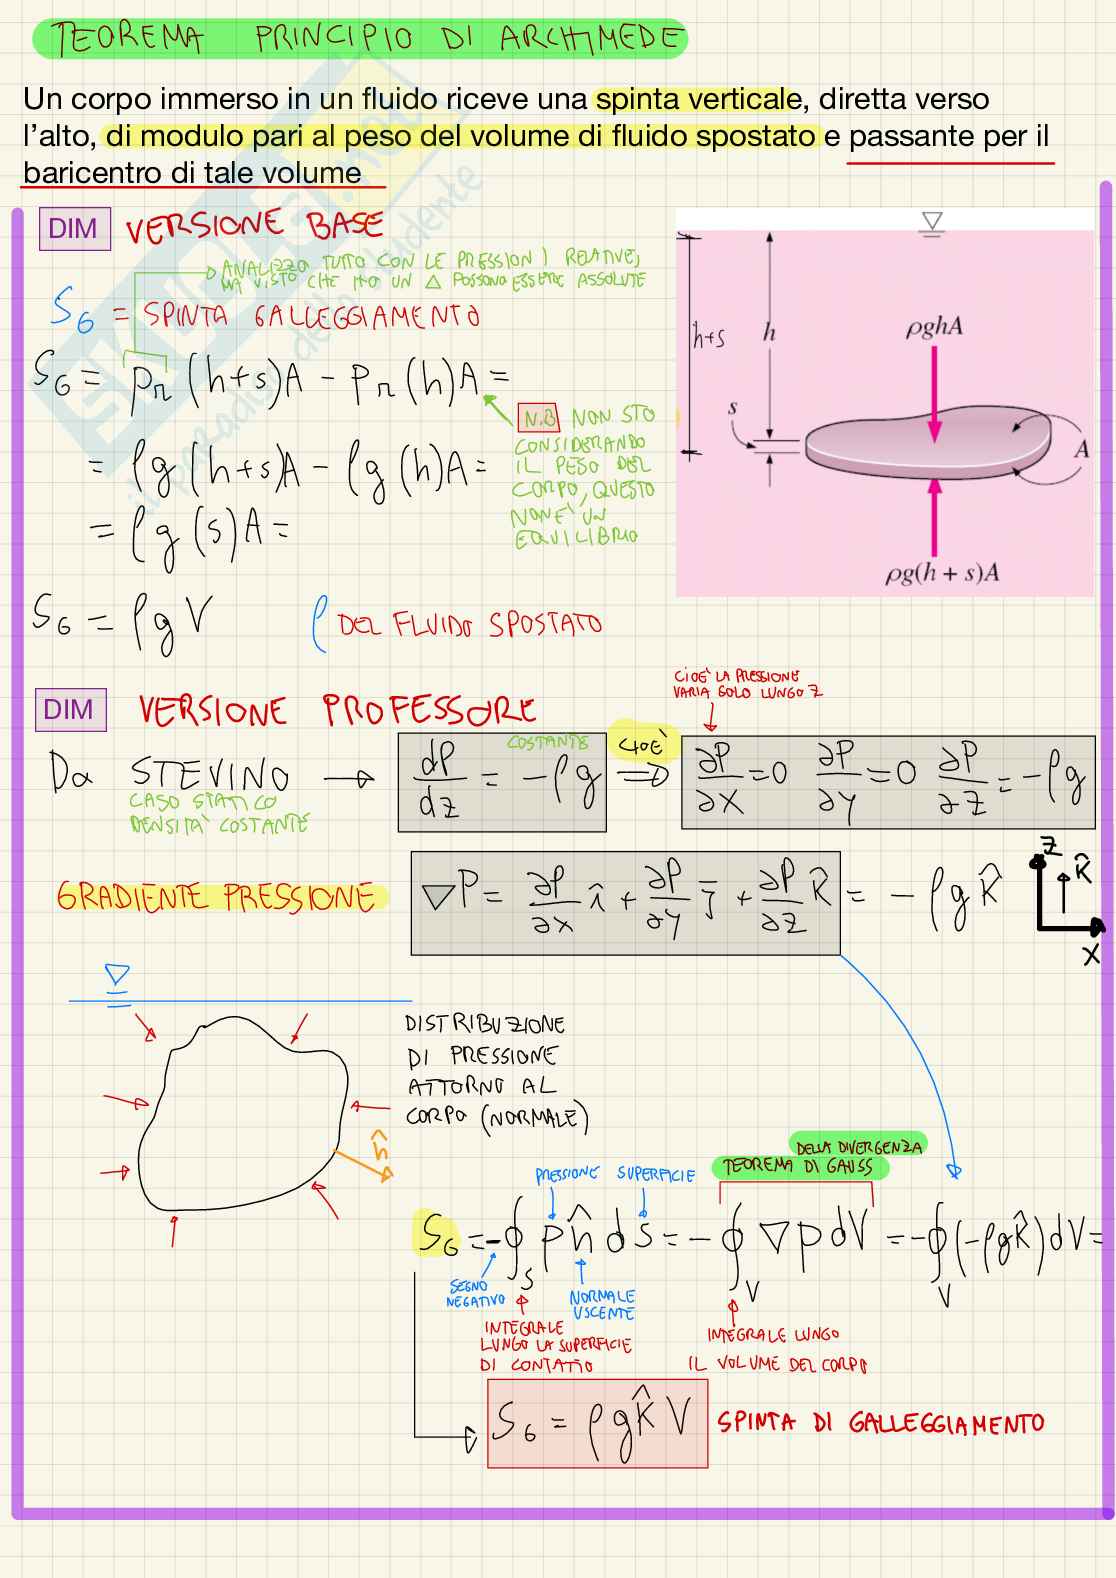 TEOREMA PRINCIPIO DI ARCHIMEDE
Un corpo immerso in un fluido riceve una spinta verticale, diretta verso
l'alto, di modulo pari al peso del volume di fluido spostato e passante per il
baricentro di tale volume
DIM VERSIONE BASE
ANALIZZO TUTTO CON LE PRESSIONI RELATIVE,
MA VISTO CHE HO UN Δ POSSONO ESSERE ASSOLUTE
S_G = SPINTA GALLEGGIAMENTO
S_G = p_r (h+s)A - p_r (h)A =
N.B NON STO
CONSIDERANDO
IL PESO DEL
CORPO, QUESTO
NON È UN
EQUILIBRIO
= ρg (h+s)A - ρg (h)A =
= ρg (s)A =
S_G = ρg V
ρ DEL FLUIDO SPOSTATO
h+s
h
s
ρghA
A
ρg(h + s)A
DIM VERSIONE PROFESSORE
CIOÈ LA PRESSIONE
VARIA SOLO LUNGO Z
Da STEVINO → dP/dz = -ρg COSTANTE CIOÈ ⇒ ∂P/∂x = 0 ∂P/∂y = 0 ∂P/∂z = -ρg
CASO STATICO
DENSITA' COSTANTE
GRADIENTE PRESSIONE ∇P = ∂P/∂x î + ∂P/∂y j + ∂P/∂z k̂ = -ρg k̂
Z
k̂
X
DISTRIBUZIONE
DI PRESSIONE
ATTORNO AL
CORPO (NORMALE)
n̂
DELLA DIVERGENZA
TEOREMA DI GAUSS
PRESSIONE SUPERFICIE
S_G = -∮_S p n̂ ds = -∮_V ∇p dV = -∮_V (-ρg k̂) dV =
SEGNO
NEGATIVO
NORMALE
USCENTE
INTEGRALE
LUNGO LA SUPERFICIE
DI CONTATTO
INTEGRALE LUNGO
IL VOLUME DEL CORPO
S_G = ρg k̂ V SPINTA DI GALLEGGIAMENTO